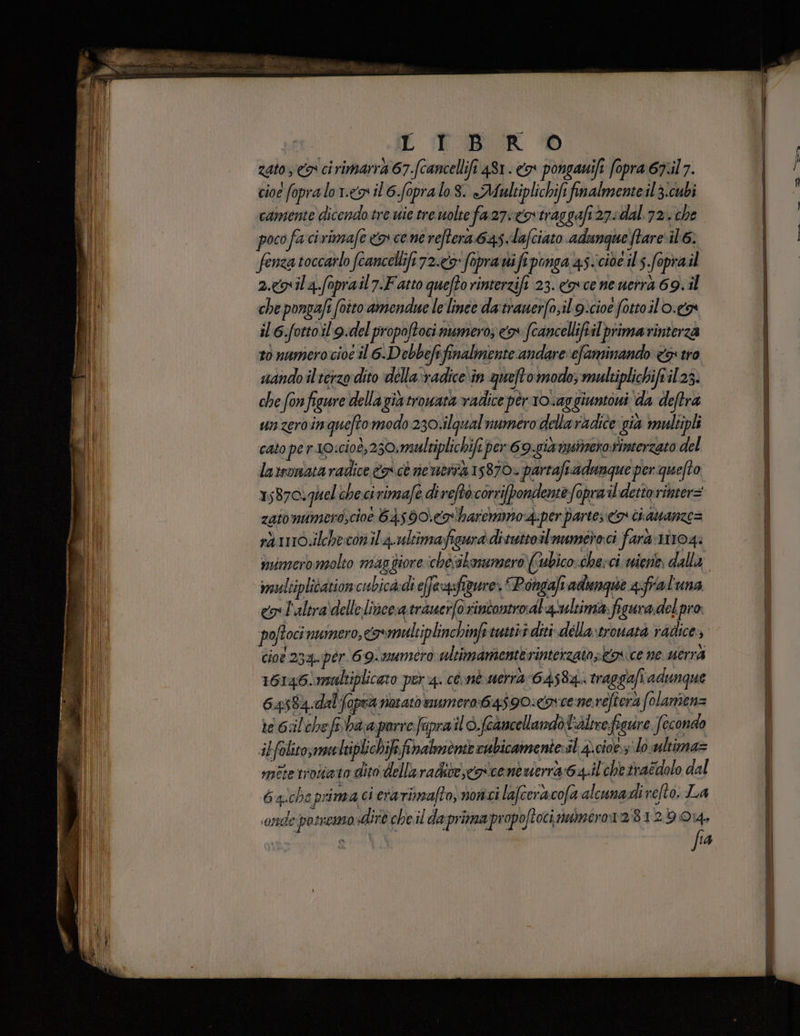 LIBRO
zato, & ci rimarrà 67. scancellisi 481. & pongauisi sopra 67. il 7.
cioè sopra lo 1. & il 6. sopra lo 8. Multiplichisi finalmente il 3. cubi
camente dicendo tre uie tre uolte fa 27. & traggasi 27. dal 72. che
poco fa ci rimase & ce ne restera 645. lasciato adunque stare il 6.
senza toccarlo scancellisi 72. & sopra ui si ponga 45. cioè il 5. sopra il
2. & il 4. sopra il 7. Fatto questo rinterzisi 23. & ce ne uerrà 69. il
che pongasi sotto amendue le linee da trauerso, il 9. cioè sotto il 0. &
il 6. sotto il 9. del propostoci numero, & scancellisi il prima rinterza
to numero cioè il 6. Debbesi finalmente andare esaminando & tro
uando il terzo dito della radice in questo modo; multiplichisi il 23.
che son figure della già trouata radice per 10. aggiuntoui da destra
un zero in questo modo 230. ilqual numero della radice già multipli
cato per 10. cioè, 230. multiplichisi per 69. già numero rinterzato del
la trouata radice & cè ne uerrà 15870. partasi adunque per questo
15870. quel che ci rimase di resto corrispondente sopra il detto rinter=
zato numero, cioè 64590. & haremmo 4. per parte, & ci auanze=
rà 1110. ilche con il 4. ultima figura di tutto il numero ci farà 11104.
numero molto maggiore che il numero Cubico che ci uiene dalla
multiplication cubica di esse 4. figure. Pongasi adunque 4. fra l'una
& l'altra delle linee a trauerso rincontro al 4. ultima figura del pro
postoci numero, & multiplinchinsi tutti i diti della trouata radice,
cioè 234. per 69. numero ultimamente rinterzato, & ce ne uerrà
16146. multiplicato per 4. cè nè uerrà 64584. traggasi adunque
64584. dal sopra notato numero 64590. & ce ne restera solamen=
te 6. il che si ha a porre sopra il 0. scancellando l'altre figure secondo
il solito, multiplichisi finalmente cubicamente il 4. cioè, lo ultima=
mēte trouato dito della radice, & ce ne uerrà 64. il che traēdolo dal
64. che prima ci era rimasto, non ci lascerà cosa alcuna di resto. La
onde potremo dire che il da prima propostoci numero 12812904.
sia